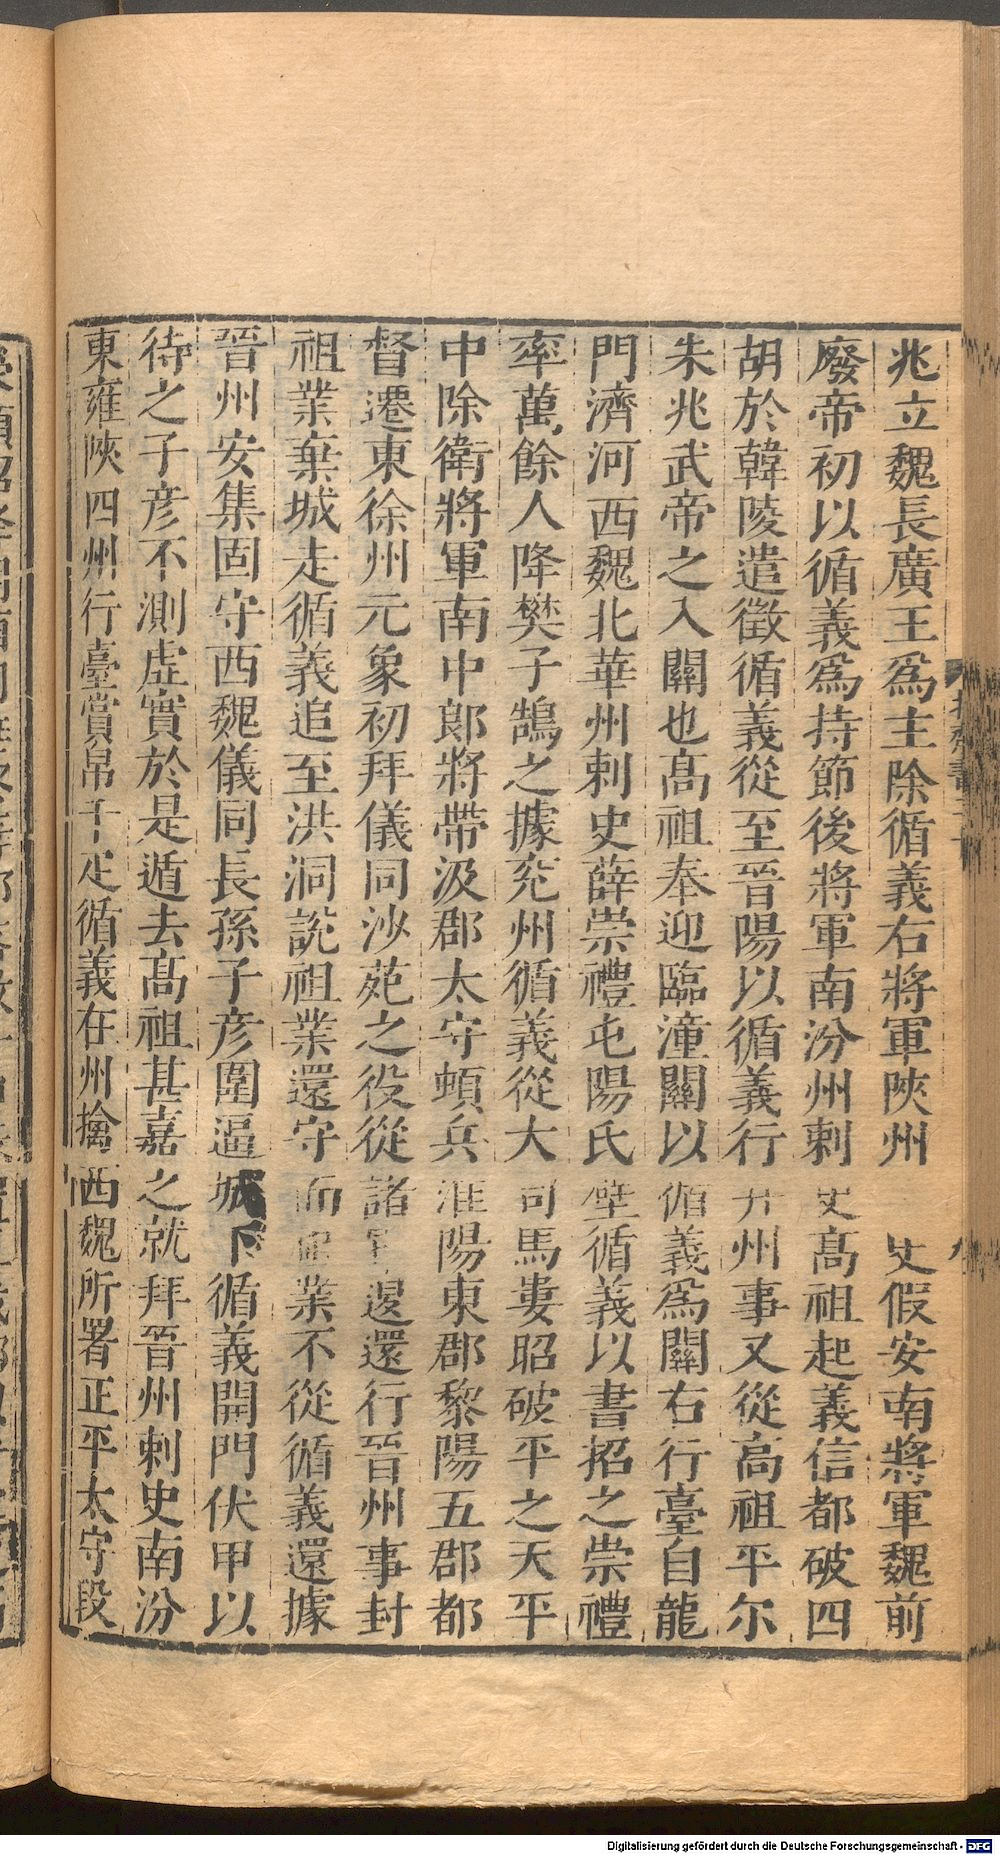 兆立魏長廣王爲主除循義右將軍陜州史假安南將軍魏前
廢帝初以循義爲持節後將軍南汾州刺史髙祖起義信都破四
胡於韓陵遣徵循義從至晉陽以循義行并州事又從高祖平尔
朱兆武帝之入關也髙祖奉迎臨潼關以循義爲關右行臺自龍
門濟河西魏北華州刺史薛崇禮屯陽氏壁循義以書招之崇禮
率萬餘人降樊子鵠之據兖州循義從大司馬婁昭破平之天平
中除衛將軍南中郎將帶汲郡太守頓兵淮陽東郡黎陽五郡都
督遷東徐州元象初拜儀同沙苑之役從諸軍退還行晉州事封
祖業棄城走循義追至洪洞説祖業還守而祖業不從循義還據
晉州安集固守西魏儀同長孫子彦圍逼城下循義開門伏甲以
待之子彦不測虚實於是遁去髙祖甚嘉之就拜晉州刺史南汾
東雍陜四州行臺賞帛千疋循義在州擒西魏所署正平太守段
Digitalisierung gefördert durch die Deutsche Forschungsgemeinschaft - DFG